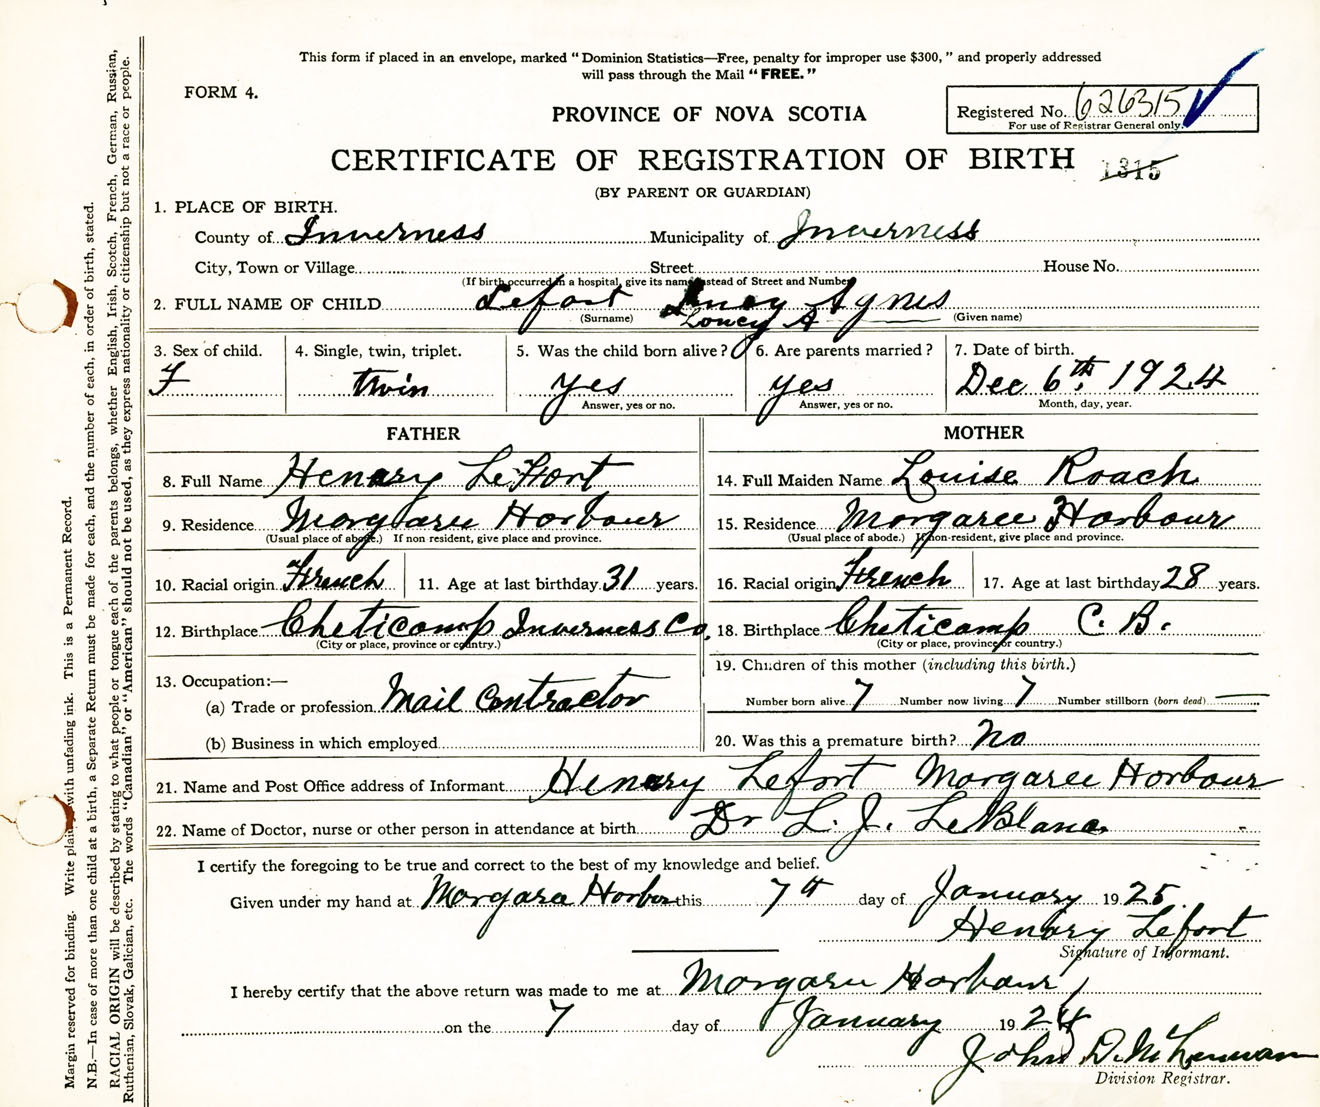 This form if placed in an envelope, marked "Dominion Statistics—Free, penalty for improper use $300," and properly addressed
will pass through the Mail "FREE."
FORM 4.
PROVINCE OF NOVA SCOTIA
Registered No. 626315
For use of Registrar General only.
CERTIFICATE OF REGISTRATION OF BIRTH
1315
(BY PARENT OR GUARDIAN)
1. PLACE OF BIRTH.
County of Inverness Municipality of Inverness
City, Town or Village Street House No.
(If birth occurred in a hospital, give its name instead of Street and Number)
2. FULL NAME OF CHILD Lefort Agnes
(Surname) Loucy A (Given name)
3. Sex of child. 4. Single, twin, triplet. 5. Was the child born alive? 6. Are parents married? 7. Date of birth.
F twin yes yes Dec 6th, 1924
Answer, yes or no. Answer, yes or no. Month, day, year.
FATHER MOTHER
8. Full Name Henary LeFort 14. Full Maiden Name Louise Roach
9. Residence Morgaree Horbour 15. Residence Morgaree Horbour
(Usual place of abode.) If non resident, give place and province. (Usual place of abode.) If non-resident, give place and province.
10. Racial origin French 11. Age at last birthday 31 years. 16. Racial origin French 17. Age at last birthday 28 years.
12. Birthplace Cheticamp Inverness Co. 18. Birthplace Cheticamp C. B.
(City or place, province or country.) (City or place, province or country.)
13. Occupation:— 19. Children of this mother (including this birth.)
(a) Trade or profession Mail Contractor Number born alive 7 Number now living 7 Number stillborn (born dead)
(b) Business in which employed 20. Was this a premature birth? No
21. Name and Post Office address of Informant Henary Lefort Morgaree Horbour
22. Name of Doctor, nurse or other person in attendance at birth Dr L. J. LeBlanc
I certify the foregoing to be true and correct to the best of my knowledge and belief.
Given under my hand at Morgara Horbor this 7th day of January 1925
Henary Lefort
Signature of Informant.
I hereby certify that the above return was made to me at Morgaree Horbour
on the 7 day of January 1924
John D. McLennan
Division Registrar.
Margin reserved for binding. Write plainly with unfading ink. This is a Permanent Record.
N.B.—In case of more than one child at a birth, a Separate Return must be made for each, and the number of each, in order of birth, stated.
RACIAL ORIGIN will be described by stating to what people or tongue each of the parents belongs, whether English, Irish, Scotch, French, German, Russian,
Ruthenian, Slovak, Galician, etc. The words "Canadian" or "American" should not be used, as they express nationality or citizenship but not a race or people.